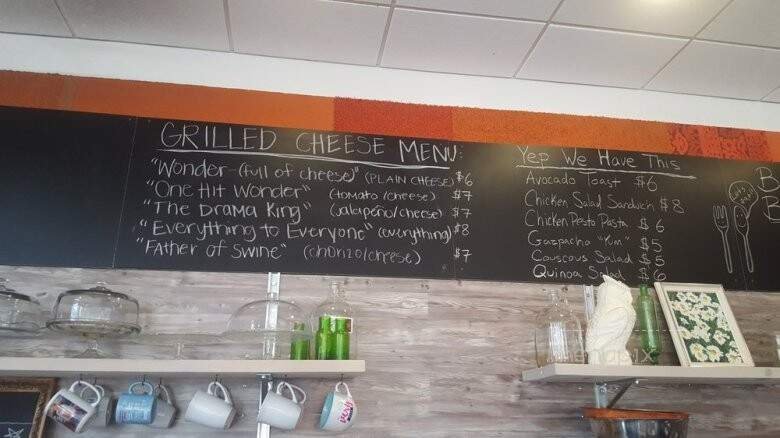 GRILLED CHEESE MENU:
"Wonder-(full of cheese)" (PLAIN CHEESE) $6
"One Hit Wonder" (tomato/cheese) $7
"The Drama King" (Jalapeño/cheese) $7
"Everything to Everyone" (everything) $8
"Father of Swine" (chorizo/cheese) $7
Yep We Have This
Avocado Toast $6
Chicken Salad Sandwich $8
Chicken Pesto Pasta $6
Gazpacho $5
Couscous Salad $5
Quinoa Salad $6
B
B